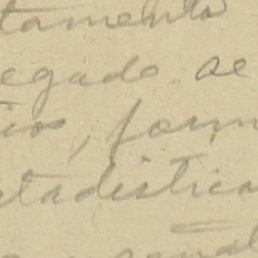 tamento
egado de
ios, form
stadistica